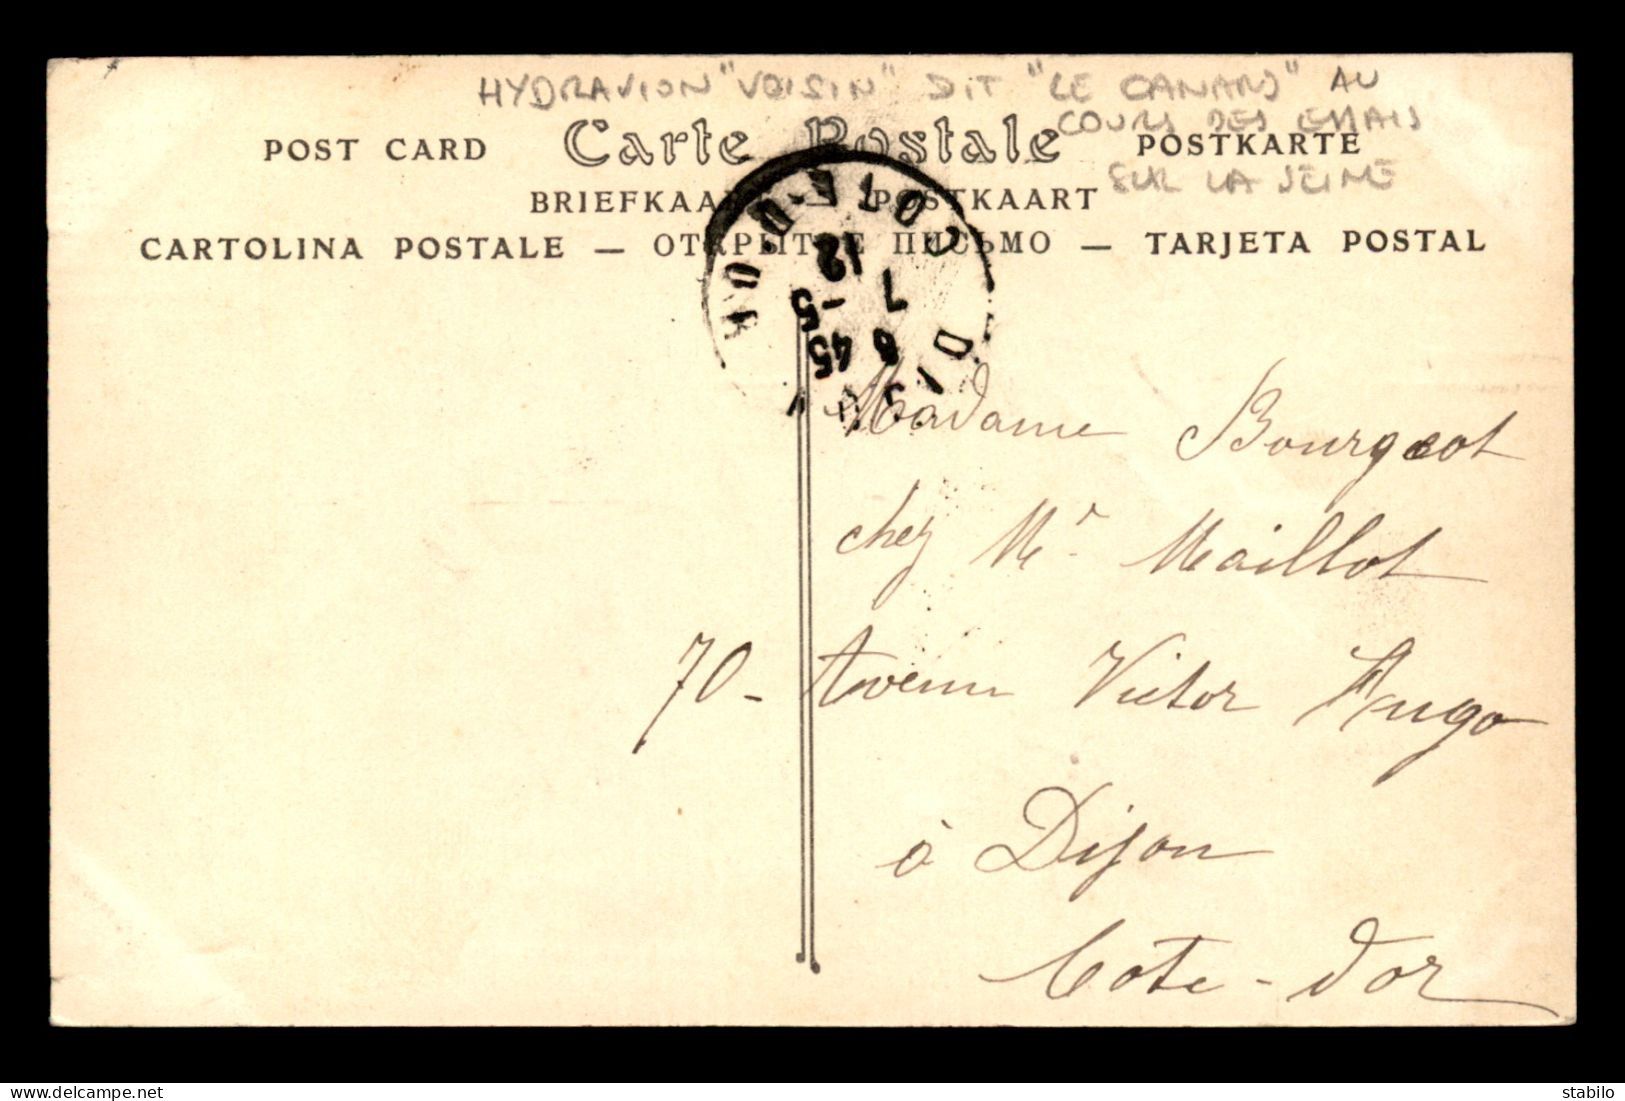 HYDRAVION "VOISIN" DIT "LE CANARD" AU
COURS DES ESSAIS
SUR LA SEINE
POST CARD Carte Postale POSTKARTE
BRIEFKAART — POSTKAART
CARTOLINA POSTALE — ОТКРЫТОЕ ПИСЬМО — TARJETA POSTAL
DIJON COTE-D'OR
6 45
7 - 5
12
Madame Bourgeot
chez Mr Maillot
70 - Avenue Victor Hugo
à Dijon
Cote-d'or
stabilo